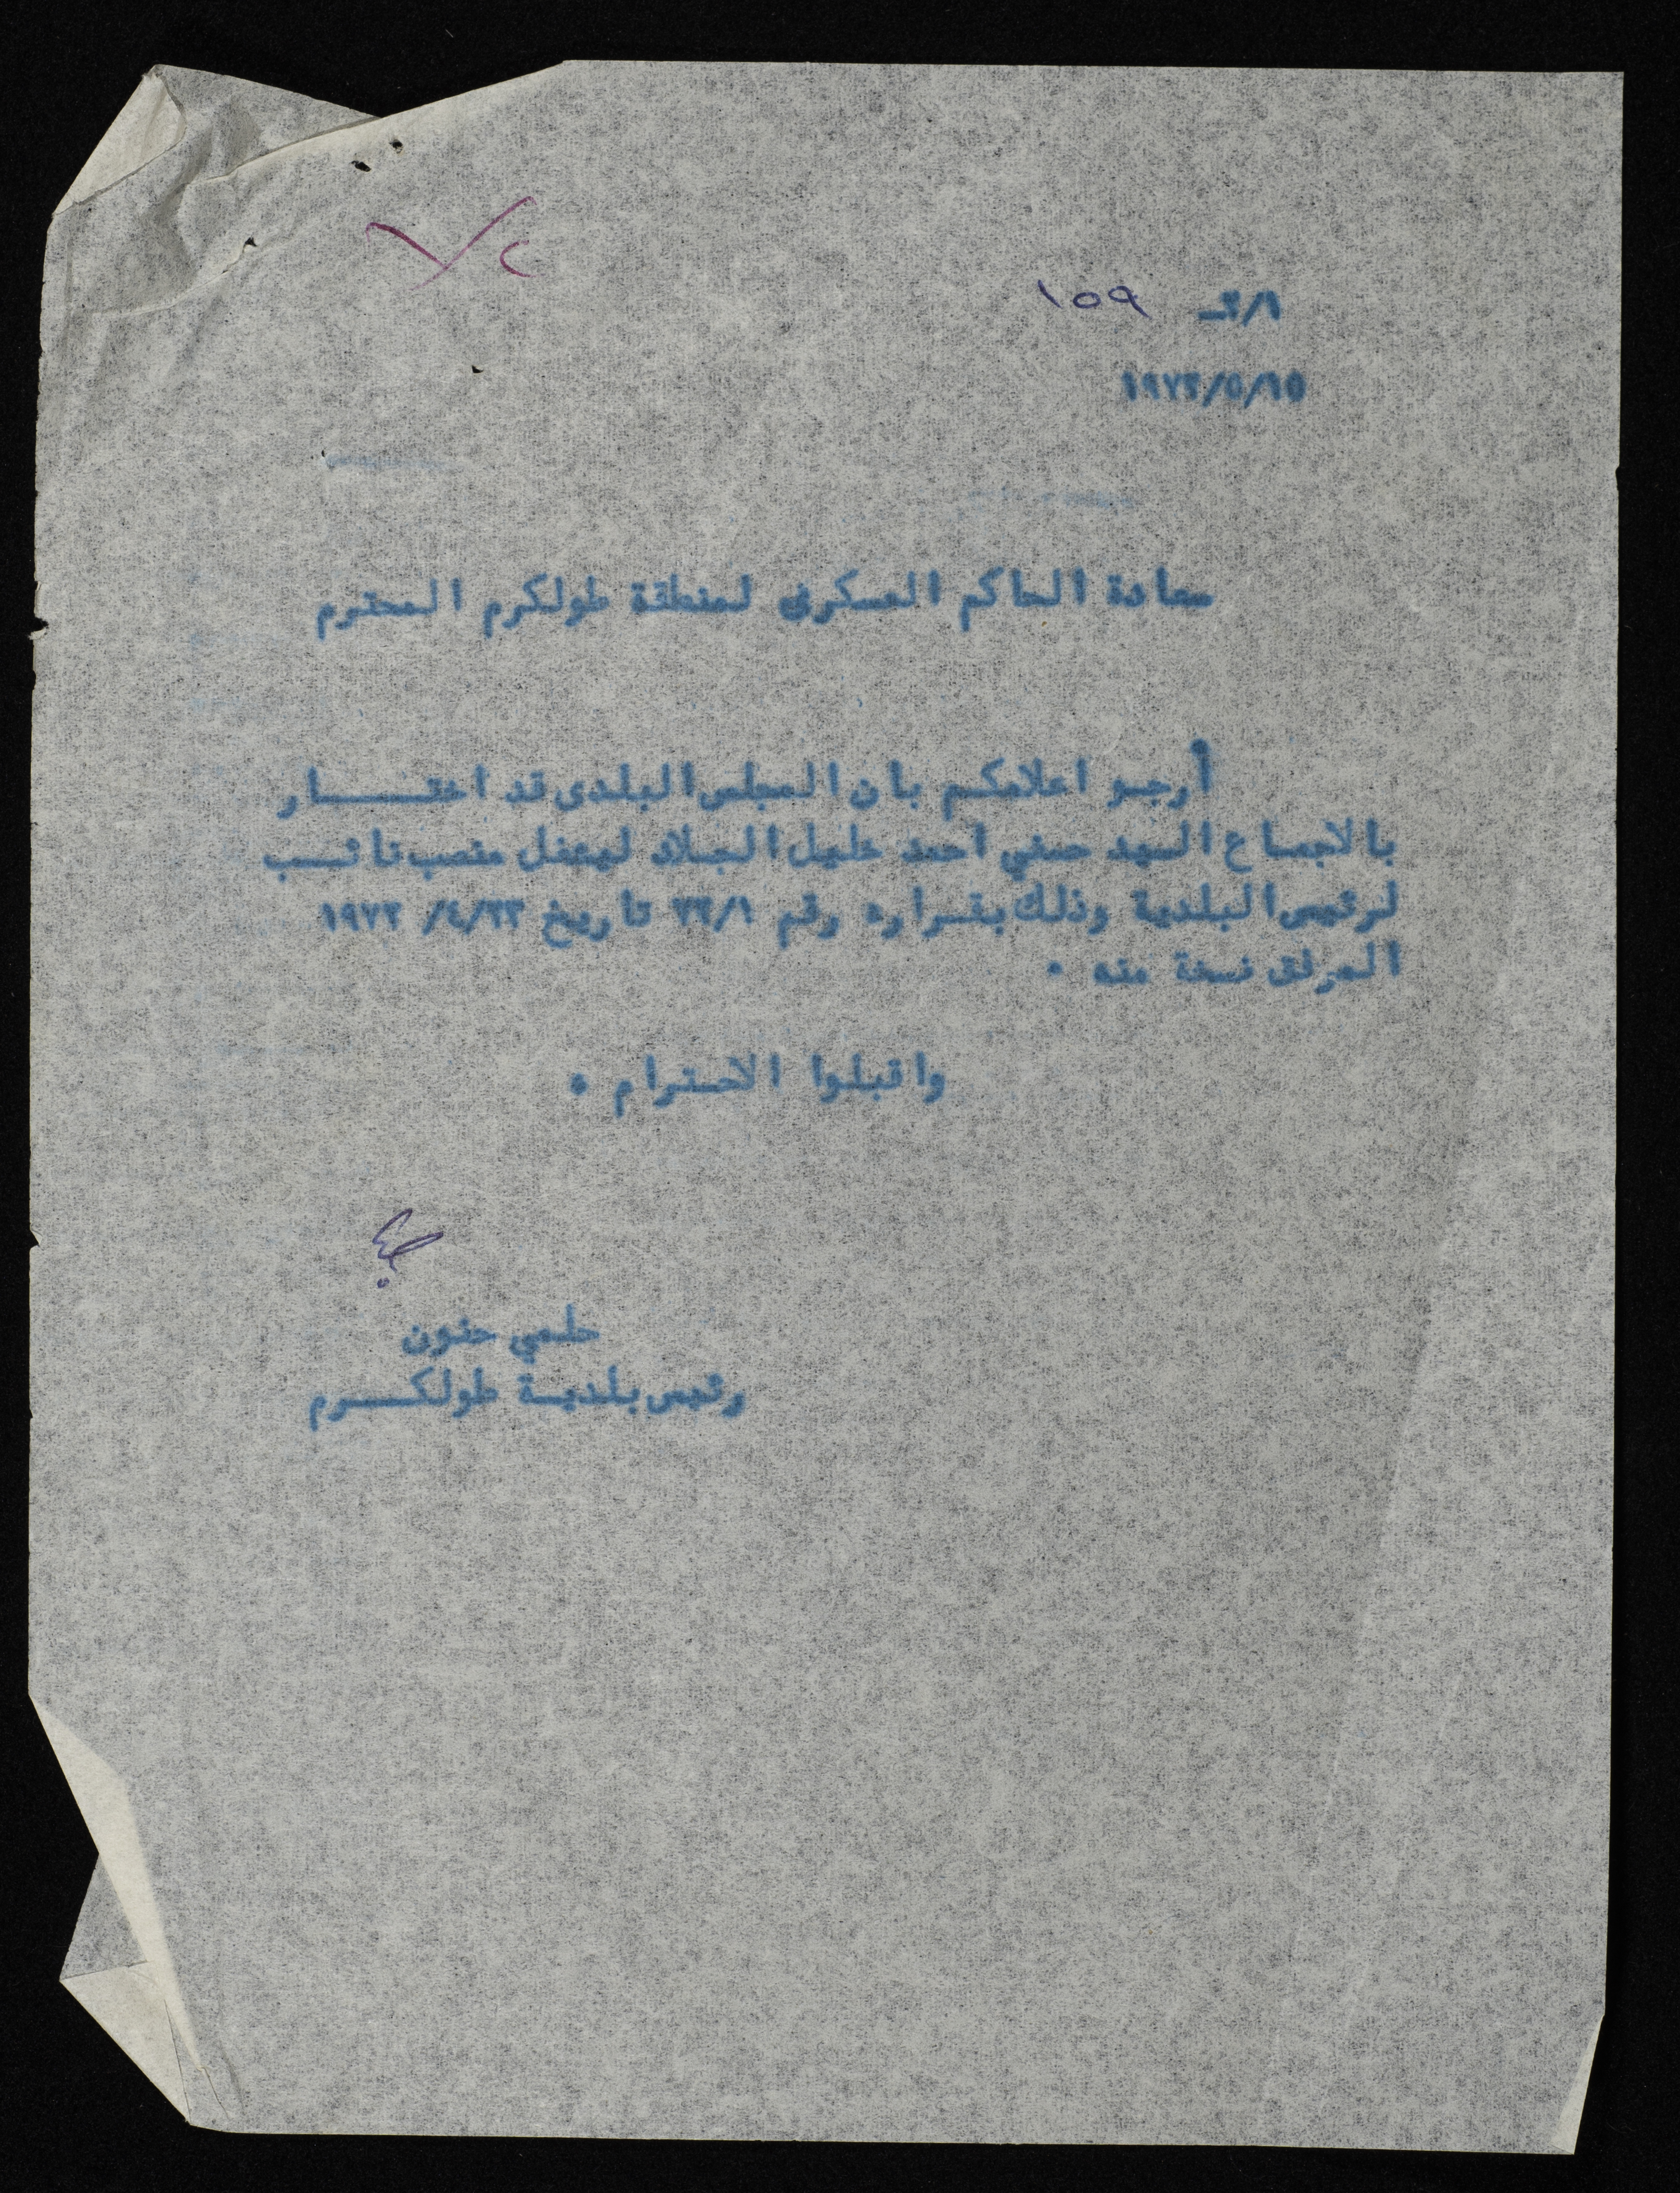 ٢/١ــ ١٥٩
١٩٧٢/٥/١٥
سعادة الحاكم العسكرى لمنطقة طولكرم المحترم
أرجو اعلامكم بان المجلس البلدى قد اختــــار
بالاجماع السيد حسني احمد خليل الجلاد ليشغل منصب نائــب
لرئيس البلدية وذلك بقــراره رقم ٢٢/١ تاريخ ٢٣/٤/ ١٩٧٢
المرفق نسخة منه ٠
واقبلوا الاحترام ٠
حلمي حنون
رئيس بلديــة طولكــرم